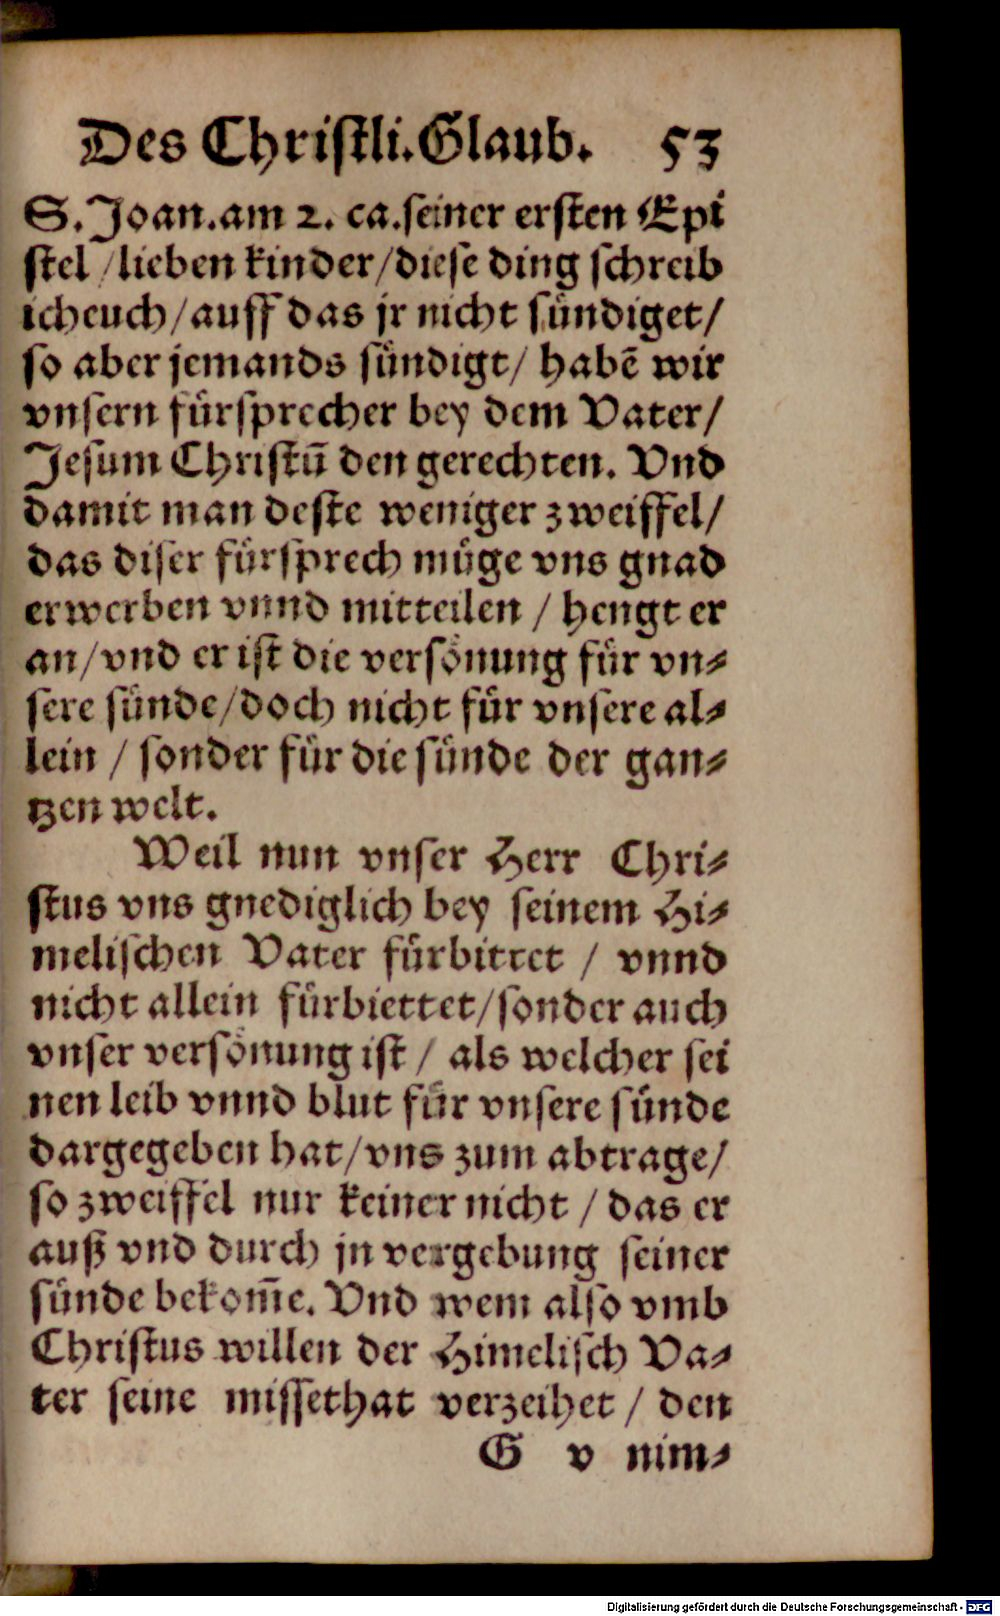 Des Christli.Glaub. 53
S.Joan.am 2. ca.seiner ersten Epi
stel /lieben kinder/diese ding schreib
ich euch/auff das jr nicht sündiget/
so aber jemands sündigt/ habē wir
vnsern fürsprecher bey dem Vater/
Jesum Christū den gerechten. Vnd
damit man deste weniger zweiffel/
das diser fürsprech müge vns gnad
erwerben vnnd mitteilen / hengt er
an/vnd er ist die versönung für vn⸗
sere sünde/doch nicht für vnsere al⸗
lein / sonder für die sünde der gan⸗
tzen welt.
Weil nun vnser Herr Chri⸗
stus vns gnediglich bey seinem Hi⸗
melischen Vater fürbittet / vnnd
nicht allein fürbiettet/sonder auch
vnser versönung ist / als welcher sei
nen leib vnnd blut für vnsere sünde
dargegeben hat/vns zum abtrage/
so zweiffel nur keiner nicht / das er
auß vnd durch jn vergebung seiner
sünde bekom̄e. Vnd wem also vmb
Christus willen der Himelisch Va⸗
ter seine missethat verzeihet / den
G v nim⸗
Digitalisierung gefördert durch die Deutsche Forschungsgemeinschaft - DFG